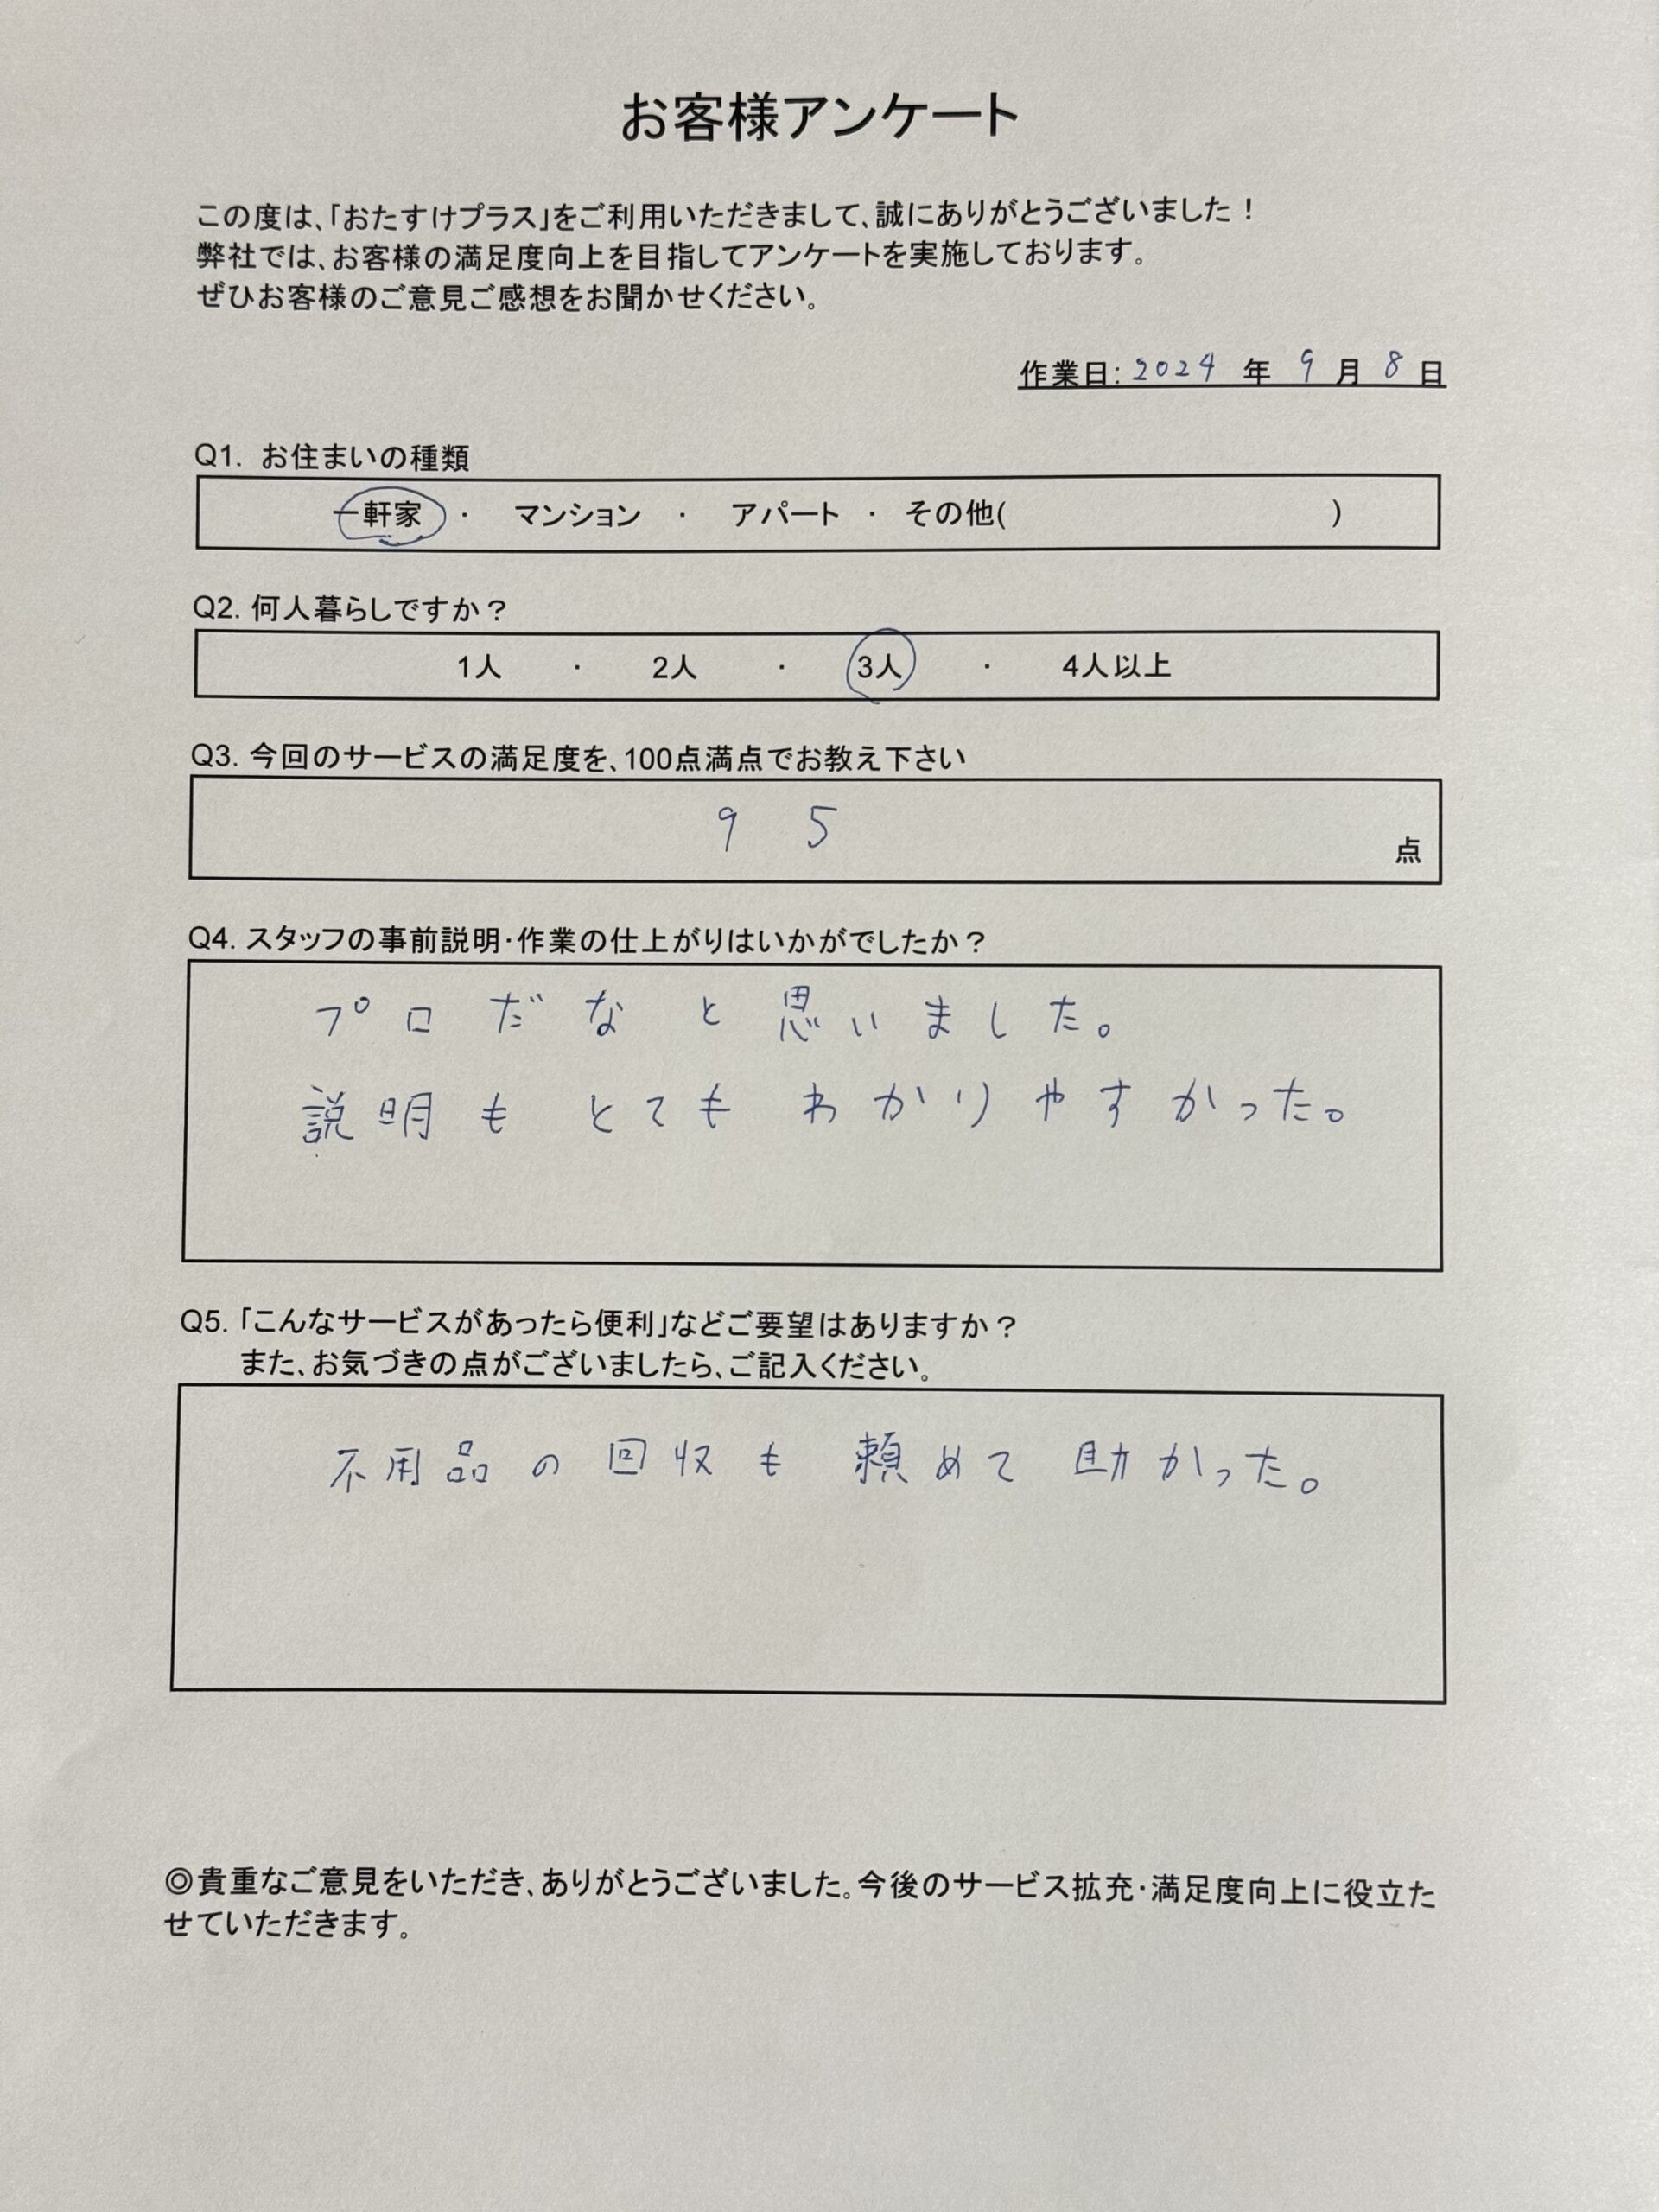 お客様アンケート
この度は、「おたすけプラス」をご利用いただきまして、誠にありがとうございました！
弊社では、お客様の満足度向上を目指してアンケートを実施しております。
ぜひお客様のご意見ご感想をお聞かせください。
作業日: 2024 年 9 月 8 日
Q1. お住まいの種類
一軒家 ・ マンション ・ アパート ・ その他( )
Q2. 何人暮らしですか？
1人 ・ 2人 ・ 3人 ・ 4人以上
Q3. 今回のサービスの満足度を、100点満点でお教え下さい
95 点
Q4. スタッフの事前説明・作業の仕上がりはいかがでしたか？
プロだなと思いました。
説明もとてもわかりやすかった。
Q5. 「こんなサービスがあったら便利」などご要望はありますか？
また、お気づきの点がございましたら、ご記入ください。
不用品の回収も頼めて助かった。
◎貴重なご意見をいただき、ありがとうございました。今後のサービス拡充・満足度向上に役立た
せていただきます。